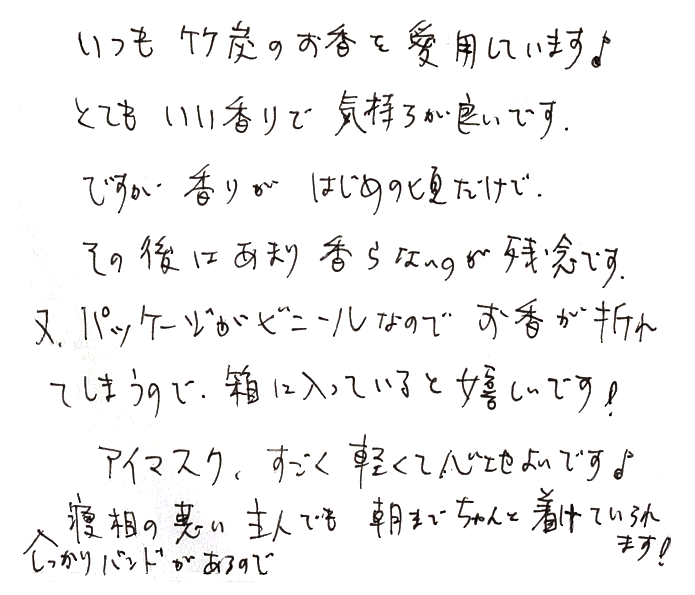 いつも 竹炭のお香を 愛用しています♪
とても いい香りで 気持ちが良いです.
ですが 香りが はじめの頃だけで.
その後はあまり 香らないのが 残念です.
又、パッケージがビニールなので お香が折れ
てしまうので、箱に入っていると嬉しいです!
アイマスク、すごく 軽くて心地よいです♪
寝相の悪い 主人でも 朝までちゃんと着けていられ
ます!
しっかりバンドがあるので